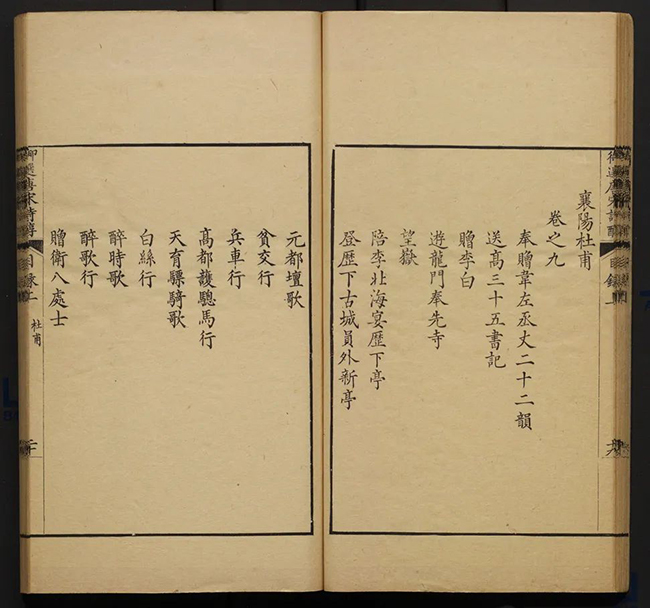 襄陽杜甫
卷之九
奉贈韋左丞丈二十二韻
送高三十五書記
贈李白
遊龍門奉先寺
望嶽
陪李北海宴歷下亭
登歷下古城員外新亭
元都壇歌
貧交行
兵車行
高都護驄馬行
天育驃騎歌
白絲行
醉時歌
醉歌行
贈衛八處士
目錄上
杜甫